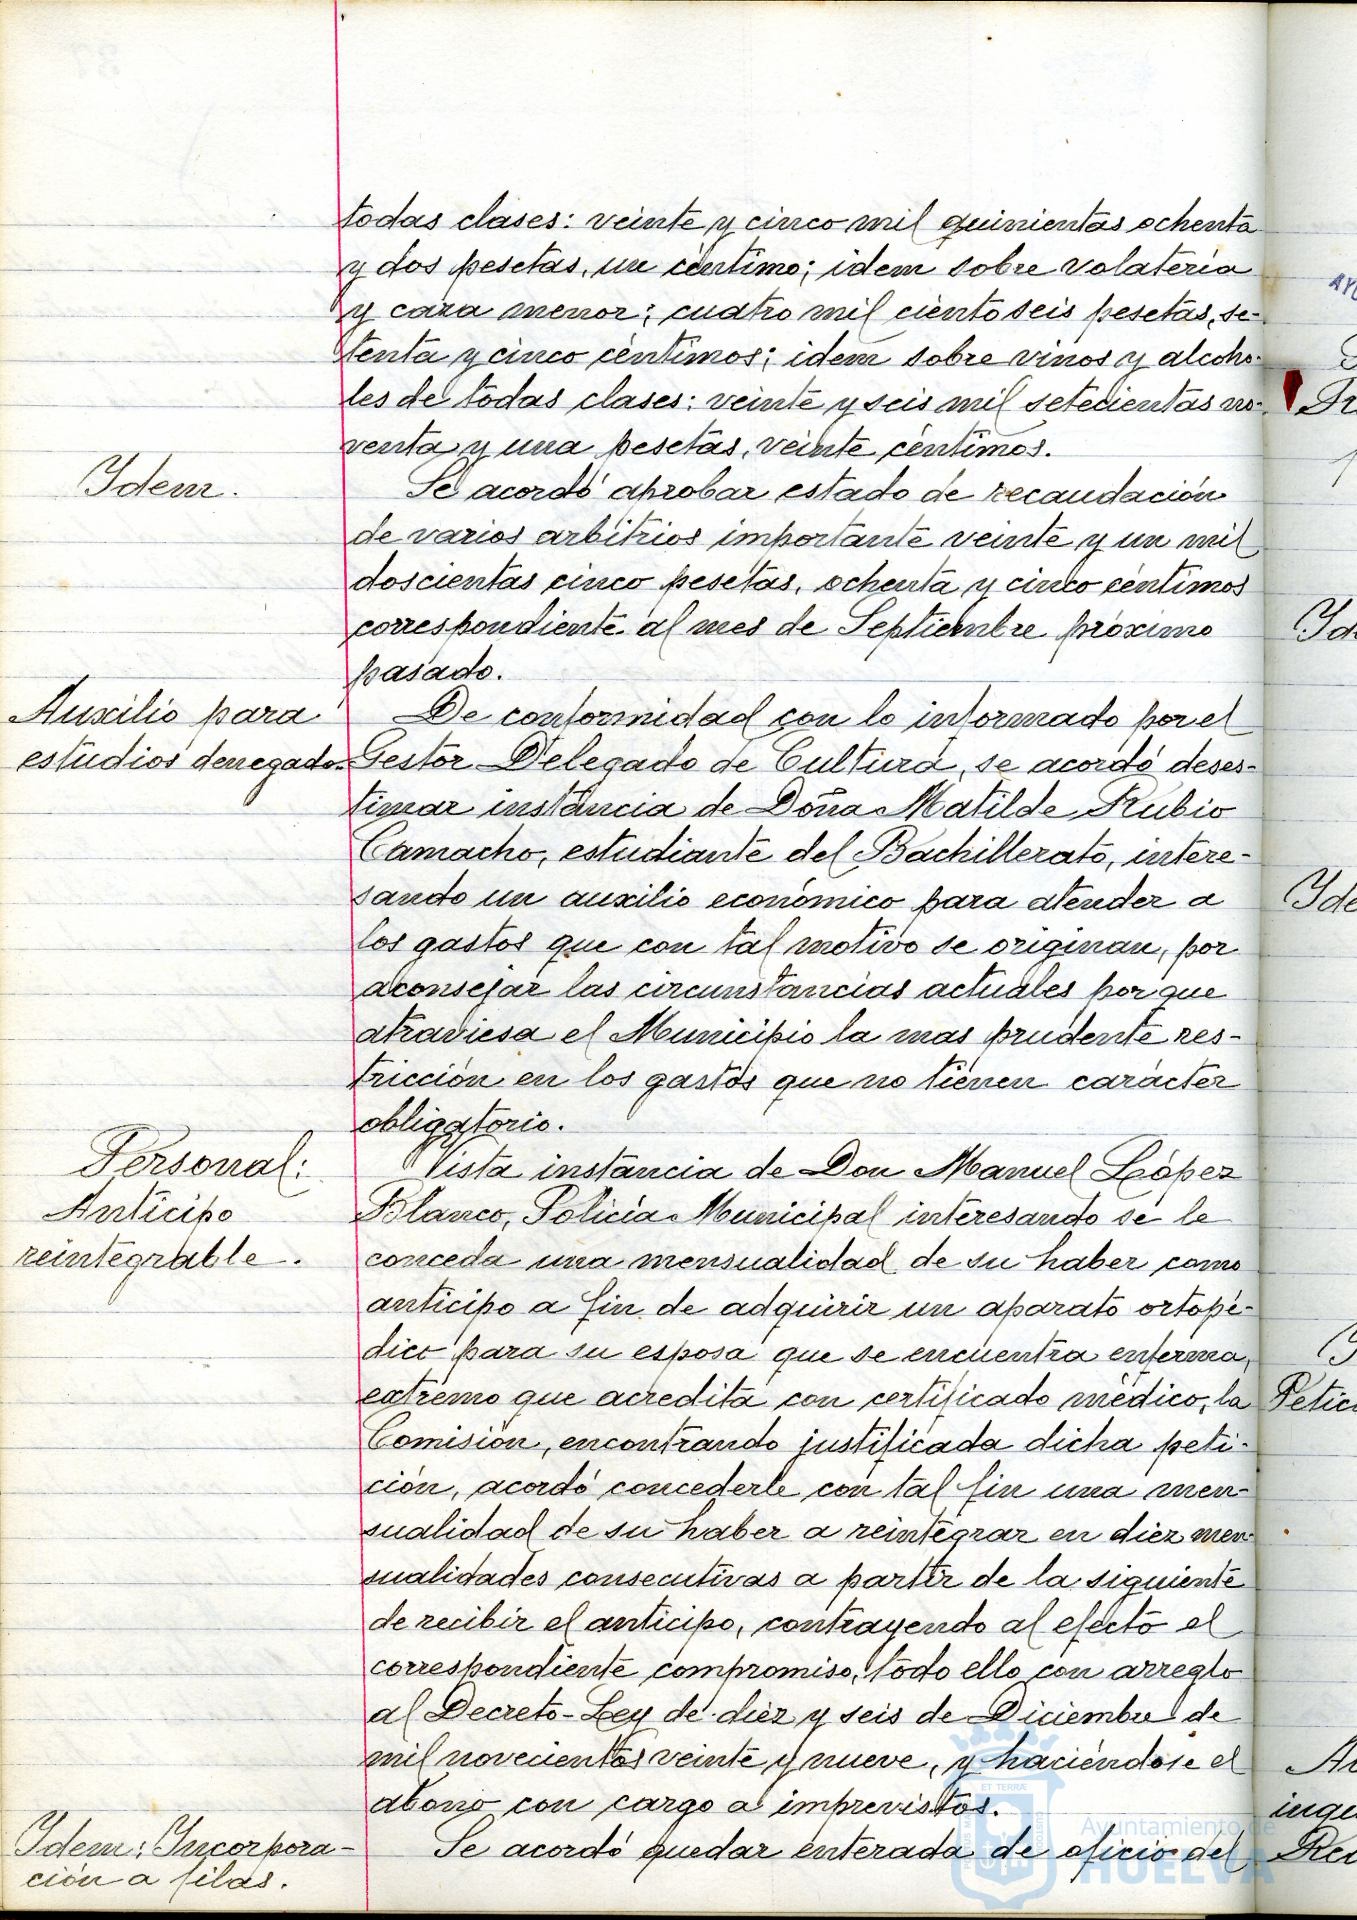 todas clases: veinte y cinco mil quinientas ochenta
y dos pesetas, un céntimo; idem sobre volatería
y caza menor; cuatro mil ciento seis pesetas, se-
tenta y cinco céntimos; idem sobre vinos y alcoho-
les de todas clases: veinte y seis mil setecientas no-
venta y una pesetas, veinte céntimos.
Idem.
Se acordó aprobar estado de recaudación
de varios arbitrios importante veinte y un mil
doscientas cinco pesetas, ochenta y cinco céntimos
correspondiente al mes de Septiembre próximo
pasado.
Auxilio para
estudios denegado.
De conformidad con lo informado por el
Gestor Delegado de Cultura, se acordó deses-
timar instancia de Doña Matilde Rubio
Camacho, estudiante del Bachillerato, intere-
sando un auxilio económico para atender a
los gastos que con tal motivo se originan, por
aconsejar las circunstancias actuales porque
atraviesa el Municipio la mas prudente res-
tricción en los gastos que no tienen carácter
obligatorio.
Personal:
Anticipo
reintegrable.
Vista instancia de Don Manuel López
Blanco, Policía Municipal interesando se le
conceda una mensualidad de su haber como
anticipo a fin de adquirir un aparato ortopé-
dico para su esposa que se encuentra enferma,
extremo que acredita con certificado médico, la
Comisión, encontrando justificada dicha peti-
ción, acordó concederle con tal fin una men-
sualidad de su haber a reintegrar en diez men-
sualidades consecutivas a partir de la siguiente
de recibir el anticipo, contrayendo al efecto el
correspondiente compromiso, todo ello con arreglo
al Decreto-Ley de diez y seis de Diciembre de
mil novecientos veinte y nueve, y haciéndose el
abono con cargo a imprevistos.
Idem: Incorpora-
ción a filas.
Se acordó quedar enterada de oficio del
Ayuntamiento de
HUELVA